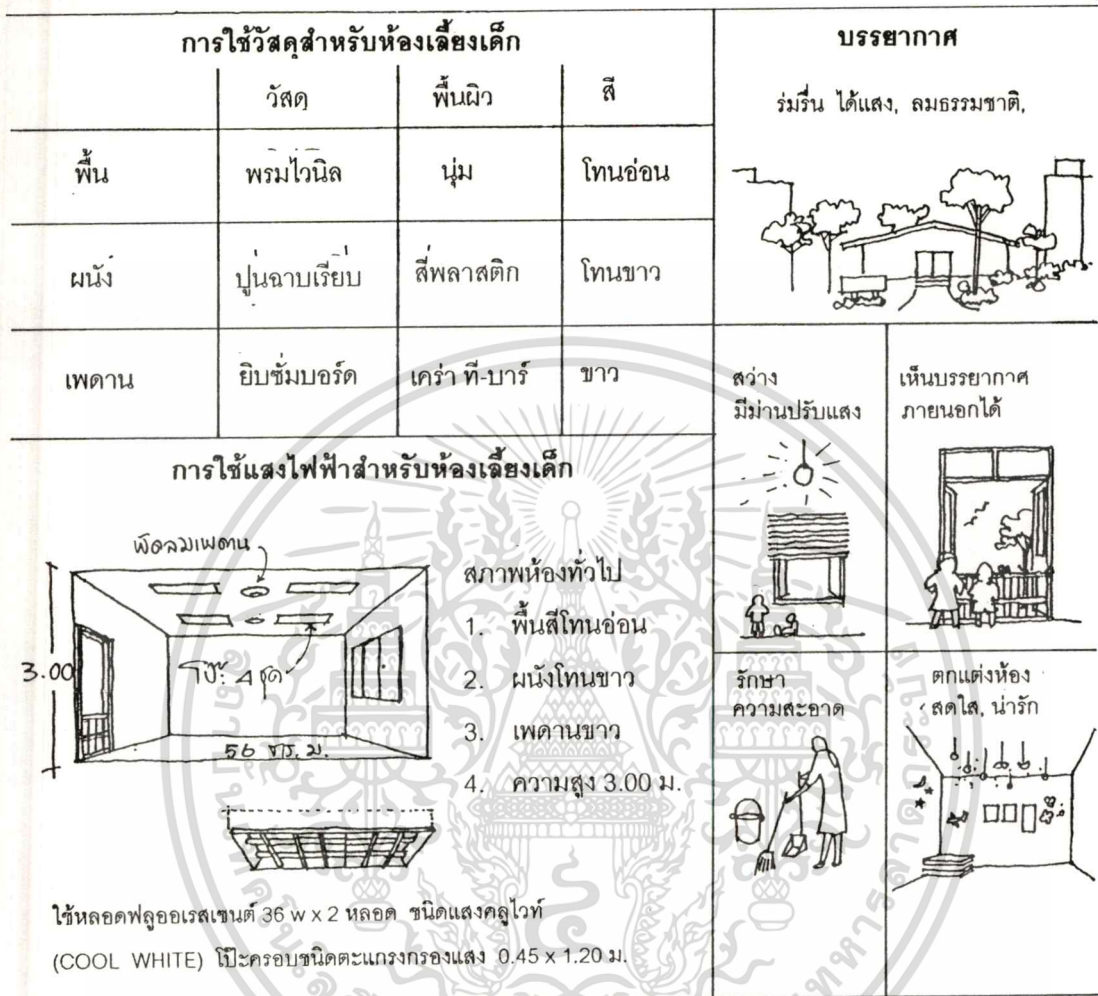 การใช้วัสดุสำหรับห้องเลี้ยงเด็ก
วัสดุ พื้นผิว สี
พื้น พรมไวนิล นุ่ม โทนอ่อน
ผนัง ปูนฉาบเรียบ สีพลาสติก โทนขาว
เพดาน ยิบซั่มบอร์ด เคร่า ที-บาร์ ขาว
การใช้แสงไฟฟ้าสำหรับห้องเลี้ยงเด็ก
พัดลมเพดาน
3.00
โป๊ะ 4 ชุด
56 ตร.ม.
สภาพห้องทั่วไป
1. พื้นสีโทนอ่อน
2. ผนังโทนขาว
3. เพดานขาว
4. ความสูง 3.00 ม.
ใช้หลอดฟลูออเรสเซนต์ 36 w x 2 หลอด ชนิดแสงคลูไวท์
(COOL WHITE) โป๊ะครอบชนิดตะแกรงกรองแสง 0.45 x 1.20 ม.
บรรยากาศ
ร่มรื่น ได้แสง, ลมธรรมชาติ,
สว่าง
มีม่านปรับแสง
เห็นบรรยากาศ
ภายนอกได้
รักษา
ความสะอาด
ตกแต่งห้อง
สดใส, น่ารัก